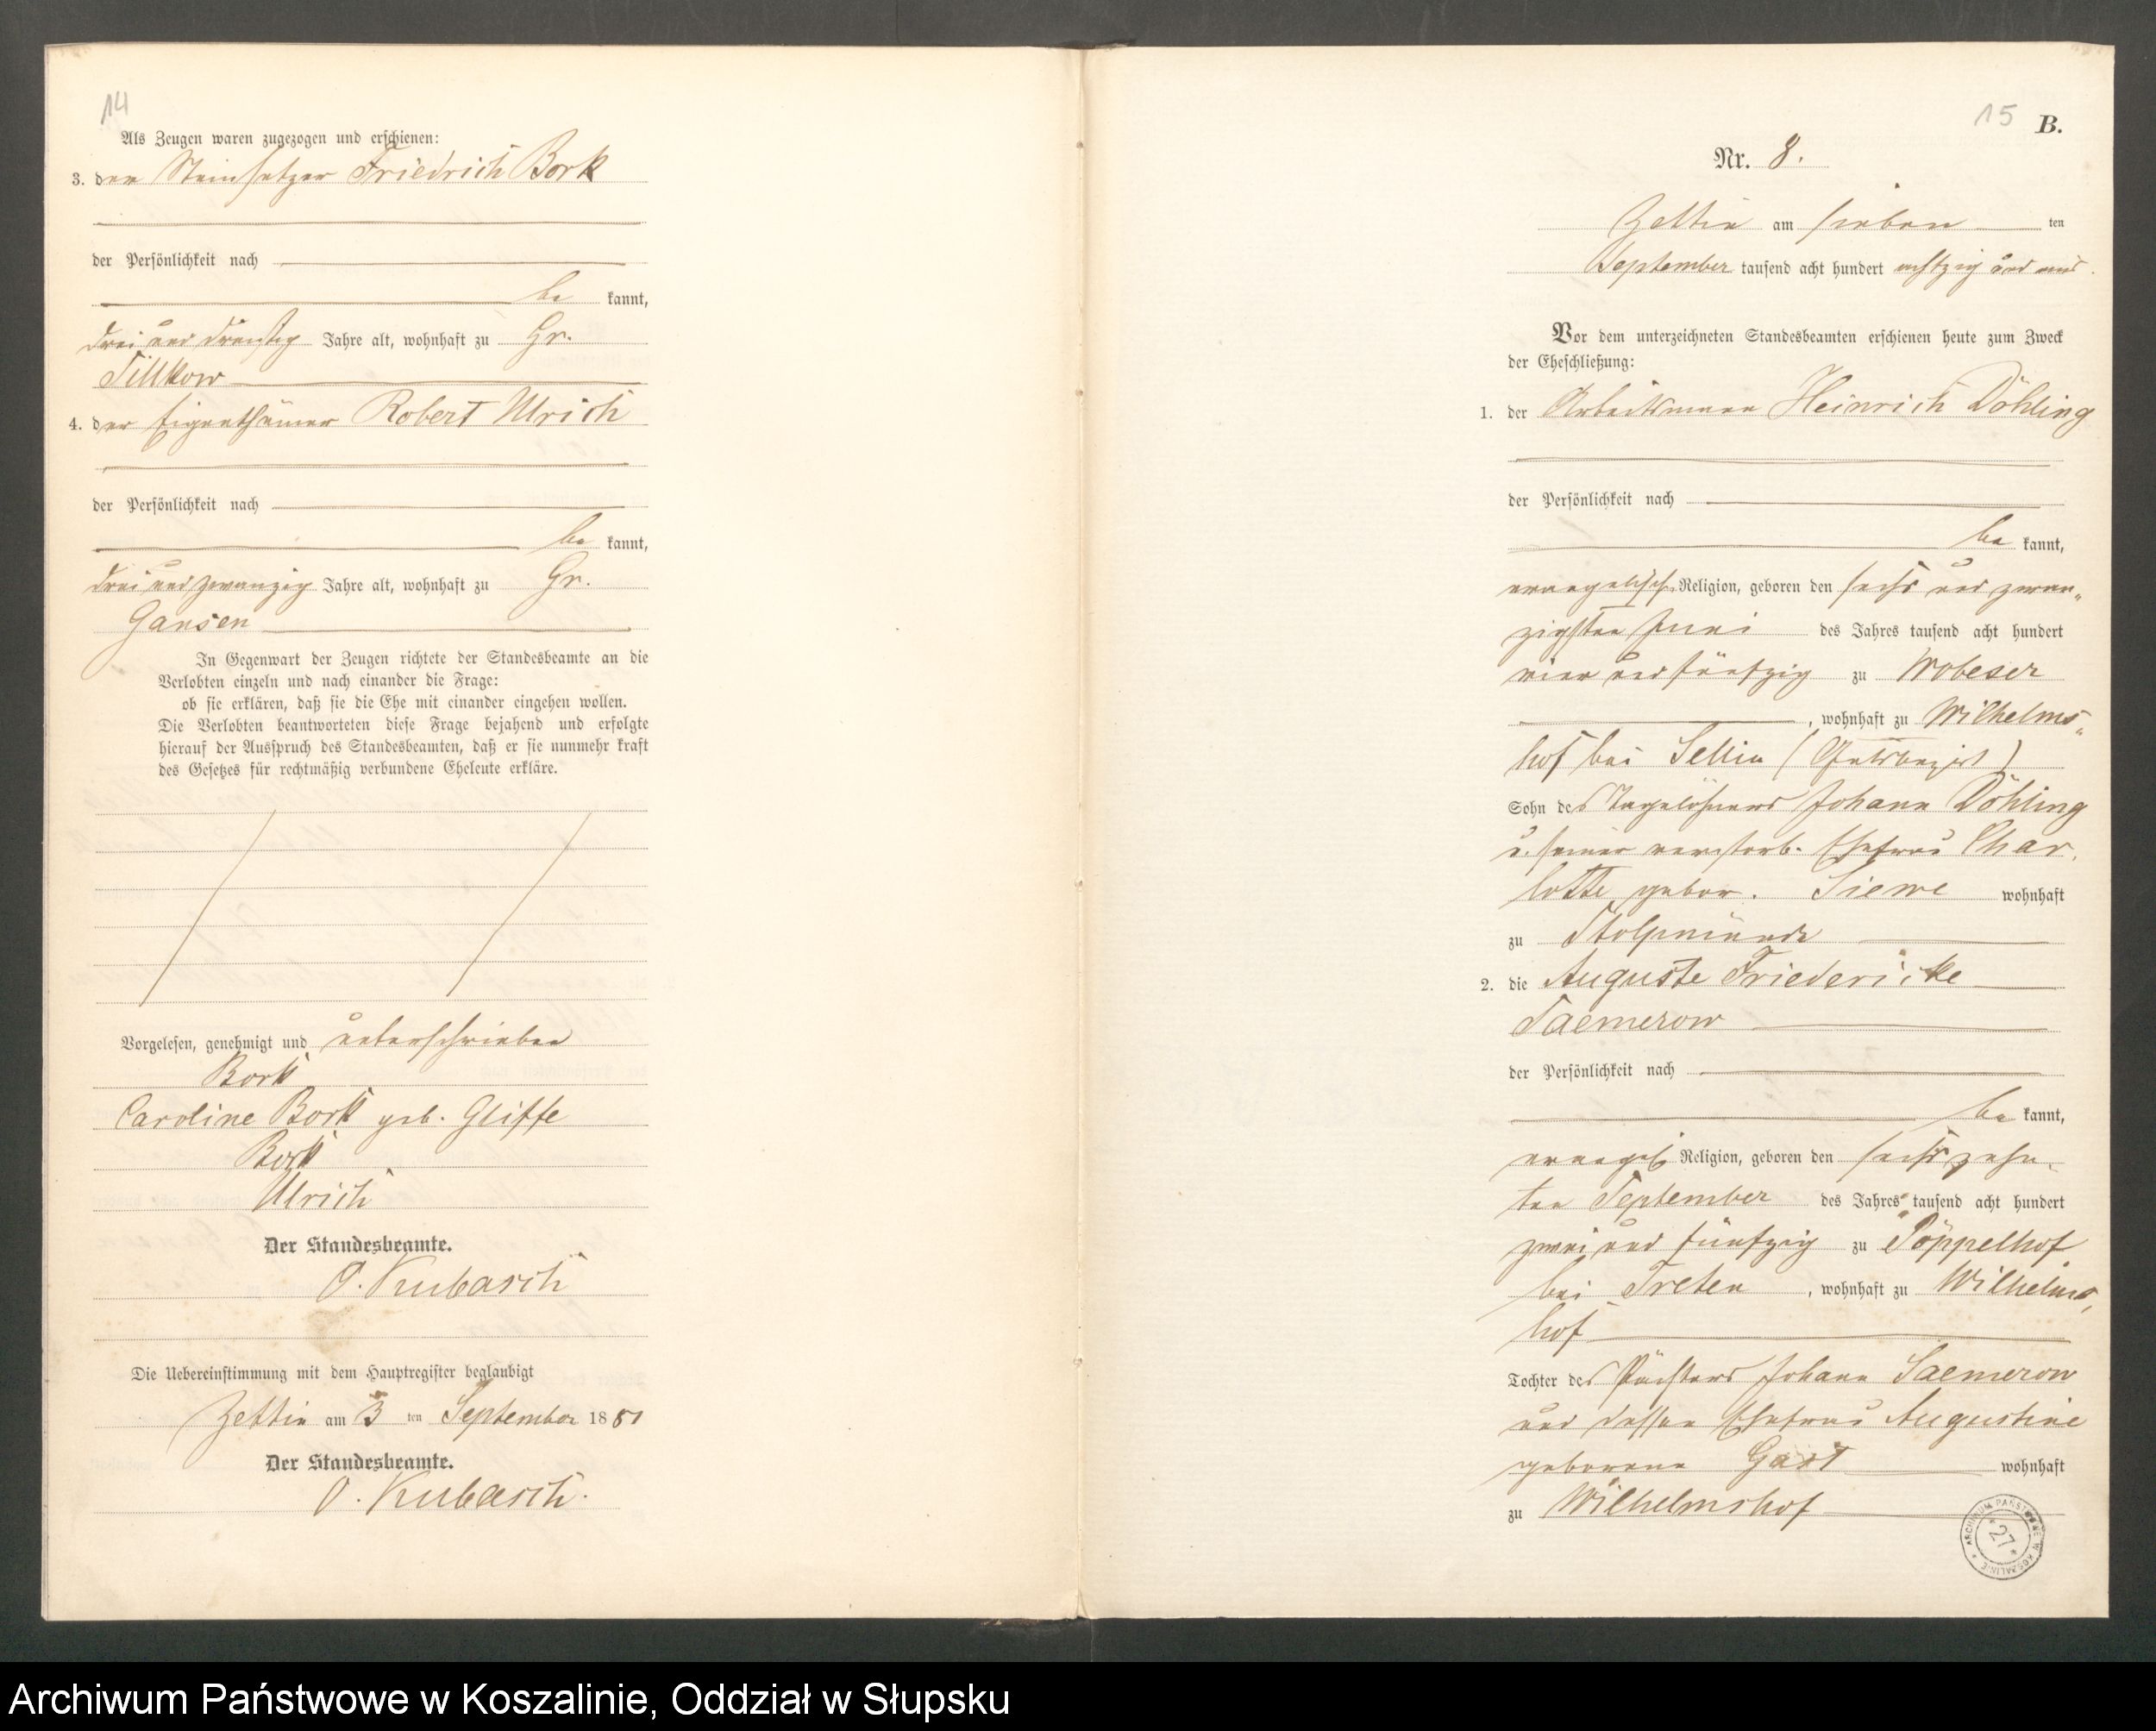 14
Als Zeugen waren zugezogen und erschienen:
3. der Steinsetzer Friedrich Bork
der Persönlichkeit nach
be kannt,
drei und dreißig Jahre alt, wohnhaft zu Gr.
Tillkow
4. der Eigenthümer Robert Ulrich
der Persönlichkeit nach
be kannt,
drei und zwanzig Jahre alt, wohnhaft zu Gr.
Gansen
In Gegenwart der Zeugen richtete der Standesbeamte an die
Verlobten einzeln und nach einander die Frage:
ob sie erklären, daß sie die Ehe mit einander eingehen wollen.
Die Verlobten beantworteten diese Frage bejahend und erfolgte
hierauf der Ausspruch des Standesbeamten, daß er sie nunmehr kraft
des Gesetzes für rechtmäßig verbundene Eheleute erkläre.
Vorgelesen, genehmigt und unterschrieben
Bork
Caroline Bork geb. Gliffe
Bork
Ulrich
Der Standesbeamte.
O. Kubasch
Die Uebereinstimmung mit dem Hauptregister beglaubigt
Zettin am 3 ten September 1881
Der Standesbeamte.
O. Kubasch.
15
B.
Nr. 8.
Zettin am sieben ten
September tausend acht hundert achtzig und eins.
Vor dem unterzeichneten Standesbeamten erschienen heute zum Zweck
der Eheschließung:
1. der Arbeitsmann Heinrich Döhling
der Persönlichkeit nach
be kannt,
evangelisch. Religion, geboren den sechs und zwan„
zigsten Juni des Jahres tausend acht hundert
vier und fünfzig zu Wobeser
, wohnhaft zu Wilhelms„
hof bei Sellin (Gutsbezirk)
Sohn des Tagelöhners Johann Döhling
u. seiner verstorb. Ehefrau Char.
lotte gebor. Siewe wohnhaft
zu Stolpmünde
2. die Auguste Friedericke
Saemerow
der Persönlichkeit nach
be kannt,
evangel. Religion, geboren den sechszehn.
ten September des Jahres tausend acht hundert
zwei und fünfzig zu Pöppelhof
bei Treten, wohnhaft zu Wilhelms,
hof
Tochter des Pächters Johann Saemerow
und dessen Ehefrau Augustine
geborene Gast wohnhaft
zu Wilhelmshof
ARCHIWUM PAŃSTWOWE W KOSZALINIE
* 27 *
Archiwum Państwowe w Koszalinie, Oddział w Słupsku